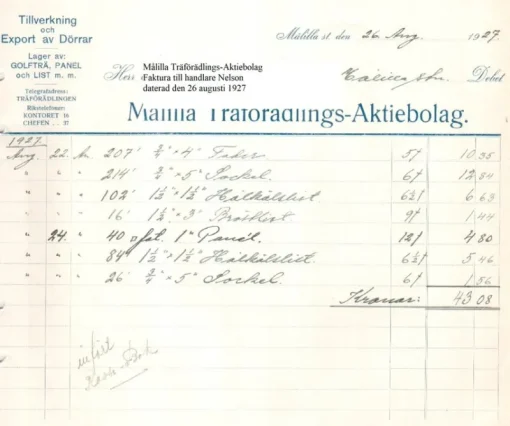 Tillverkning
och
Export av Dörrar
Lager av:
GOLFTRÄ, PANEL
och LIST m. m.
Telegrafadress:
TRÄFÖRÄDLINGEN
Rikstelefoner:
KONTORET 16
CHEFEN .. 37
Målilla st den 26 Aug. 1927.
Herr
Debet
Målilla Träförädlings-Aktiebolag
Faktura till handlare Nelson
daterad den 26 augusti 1927
Målilla Träförädlings-Aktiebolag.
1927.
Aug. 22. 207' 3/4" × 4" Foder 5 10 35
" " " 214' 3/4" × 5" Sockel 6 12 84
" " " 102' 1½" × 1½" Hålkälslist 6½ 6 63
" " " 16' 1½" × 3" Bröstlist 9 1 44
" 24. " 40 fot. 1" Panel. 12 4 80
" " " 84' 1½" × 1½" Hålkälslist. 6½ 5 46
" " " 26' 3/4" × 5" Sockel 6 1 56
Kronor: 43 08
infört